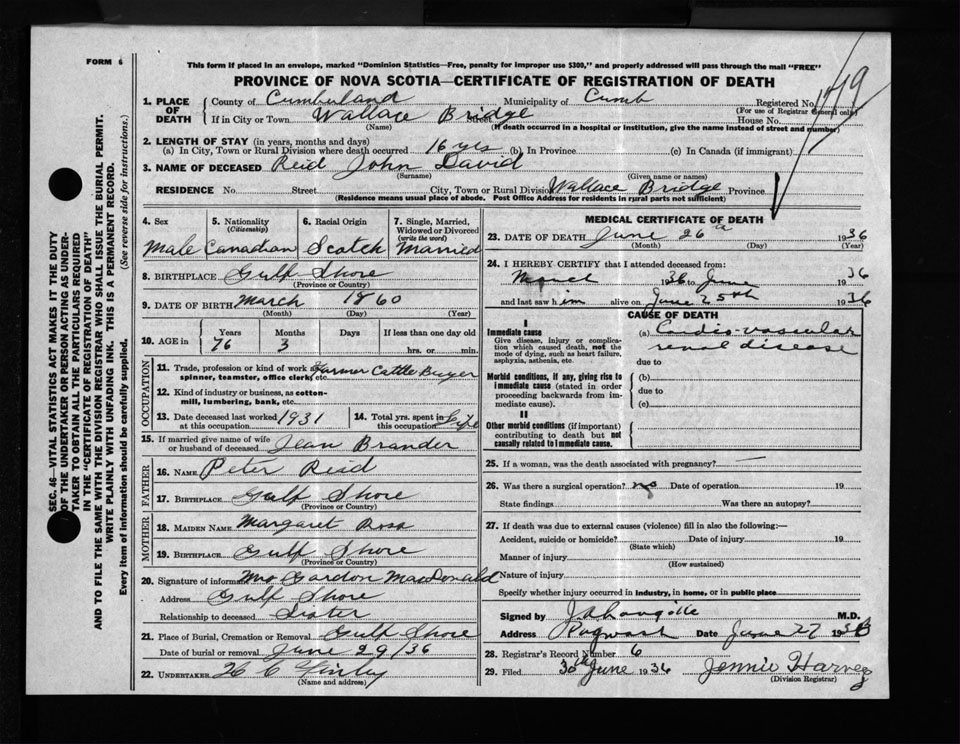 FORM 6
This form if placed in an envelope, marked "Dominion Statistics—Free, penalty for improper use $300," and properly addressed will pass through the mail "FREE"
PROVINCE OF NOVA SCOTIA—CERTIFICATE OF REGISTRATION OF DEATH
1. PLACE OF DEATH
County of Cumberland Municipality of Cumb Registered No.
(For use of Registrar General only)
If in City or Town Wallace Bridge Street House No.
(Name) (If death occurred in a hospital or institution, give the name instead of street and number)
2. LENGTH OF STAY (in years, months and days)
(a) In City, Town or Rural Division where death occurred 16 yrs (b) In Province (c) In Canada (if immigrant)
3. NAME OF DECEASED Reid John David
(Surname) (Given name or names)
RESIDENCE No. Street City, Town or Rural Division Wallace Bridge Province
(Residence means usual place of abode. Post Office Address for residents in rural parts not sufficient)
4. Sex
Male
5. Nationality
(Citizenship)
Canadian
6. Racial Origin
Scotch
7. Single, Married, Widowed or Divorced
(write the word)
Married
8. BIRTHPLACE Gulf Shore
(Province or Country)
9. DATE OF BIRTH March 1860
(Month) (Day) (Year)
10. AGE in
Years Months Days If less than one day old
76 3 hrs. or min.
OCCUPATION
11. Trade, profession or kind of work as spinner, teamster, office clerk, etc. Farmer Cattle Buyer
12. Kind of industry or business, as cotton-mill, lumbering, bank, etc.
13. Date deceased last worked at this occupation 1931
14. Total yrs. spent in this occupation
15. If married give name of wife or husband of deceased Jean Brander
FATHER
16. NAME Peter Reid
17. BIRTHPLACE Gulf Shore
(Province or Country)
MOTHER
18. MAIDEN NAME Margaret Ross
19. BIRTHPLACE Gulf Shore
(Province or Country)
20. Signature of informant Mrs Gordon MacDonald
Address Gulf Shore
Relationship to deceased Sister
21. Place of Burial, Cremation or Removal Gulf Shore
Date of burial or removal June 29/36
22. UNDERTAKER H C
(Name and address)
MEDICAL CERTIFICATE OF DEATH
23. DATE OF DEATH June 26th 1936
(Month) (Day) (Year)
24. I HEREBY CERTIFY that I attended deceased from:
March 1936 to June 1936
and last saw him alive on June 25th 1936
CAUSE OF DEATH
I
Immediate cause
Give disease, injury or complication which caused death, not the mode of dying, such as heart failure, asphyxia, asthenia, etc.
(a) Cardio-vascular
renal disease
due to
Morbid conditions, if any, giving rise to immediate cause (stated in order proceeding backwards from immediate cause).
(b)
due to
(c)
II
Other morbid conditions (if important) contributing to death but not causally related to immediate cause.
25. If a woman, was the death associated with pregnancy? —
26. Was there a surgical operation? no Date of operation 19
State findings Was there an autopsy?
27. If death was due to external causes (violence) fill in also the following:—
Accident, suicide or homicide? Date of injury 19
(State which)
Manner of injury
(How sustained)
Nature of injury
Specify whether injury occurred in industry, in home, or in public place
Signed by M.D.
Address Pugwash Date June 27 1936
28. Registrar's Record Number 6
29. Filed 30th June 1936 Jennie Harvey
(Division Registrar)
SEC. 46—VITAL STATISTICS ACT MAKES IT THE DUTY
OF THE UNDERTAKER OR PERSON ACTING AS UNDER-
TAKER TO OBTAIN ALL THE PARTICULARS REQUIRED
IN THE "CERTIFICATE OF REGISTRATION OF DEATH"
AND TO FILE THE SAME WITH THE DIVISION REGISTRAR WHO SHALL ISSUE THE BURIAL PERMIT.
WRITE PLAINLY WITH UNFADING INK. THIS IS A PERMANENT RECORD.
Every item of information should be carefully supplied. (See reverse side for instructions.)